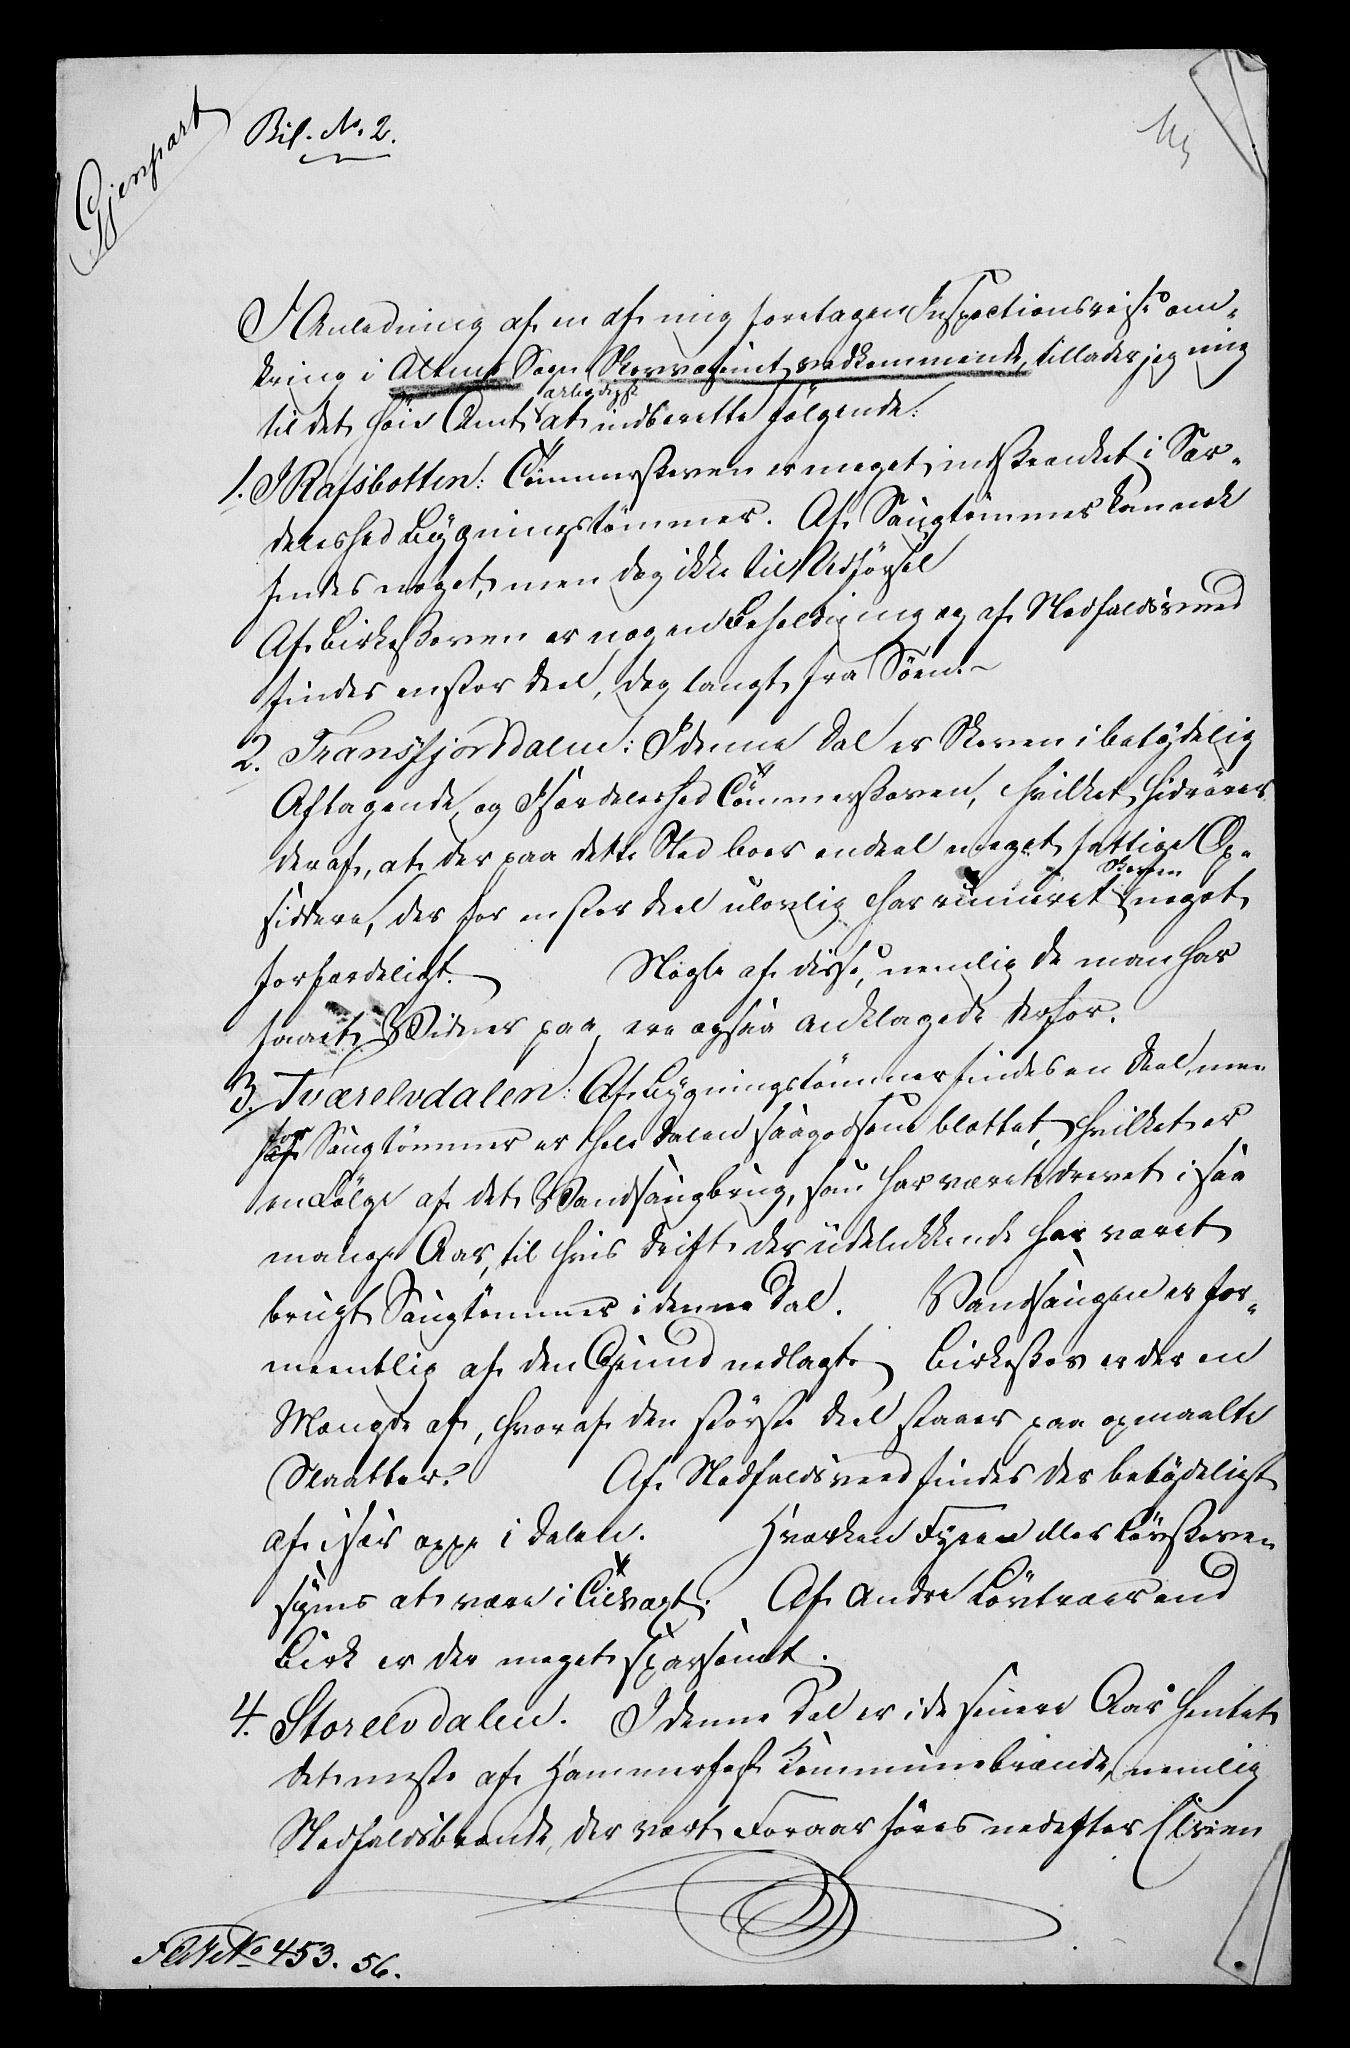 Gjenpart
Bil. No. 2.
I Anledning af en af mig foretagen Inspectionsreise om-
kring i Altens Sogn Skovvæsenet vedkommende, tillader jeg mig
til det høie Amt ærbødigst at indberette følgende:
1. I Rafsbotten: Tømmerskoven er meget indskrænket i Sær-
deleshed Bygningstømmer. Af Saugtømmer kan nok
findes noget, men dog ikke til Udførsel
Af Birkeskoven er nogen Beholdning og af Nedfaldsveed
findes en stor deel, dog langt fra Søen.
2. Transfjorddalen: I denne Dal er Skoven i betydelig
Aftagende, og Særdeleshed Tømmerskoven, hvilket hidrører
deraf, at der paa dette Sted boer endeel meget fattige Op-
siddere, der for en stor deel ulovlig har ruineret Skoven noget
forfærdeligt. Nogle af disse, nemlig de man har
faaet Vidner paa, ere ogsaa anklagede derfor.
3. Tværelvdalen: Af Bygningstømmer findes en Deel, men
for Saugtømmer er hele Dalen saagodsom blottet, hvilket er
en Følge af det Vandsaugbrug, som har været drevet i saa
mange Aar, til hvis Drift der udelukkende har været
brugt Saugtømmer i denne Dal. Vandsaugen er for-
meentlig af den Grund nedlagt. Birkeskov er der en
Mængde af, hvoraf den største Deel staaer paa opmaalte
Slaatter. Af Nedfaldsveed findes der betydeligt
af især oppe i Dalen. Hverken Fyrre eller Løvskoven
synes at være i Tilvext. Af andre Løvtræer end
Birk er der meget sparsomt.
4. Storelvdalen. I denne Dal er i de senere Aar hentet
det meste af Hammerfest Kommunebrænde, nemlig
Nedfaldsbrænde, der vært Foraar føres nedefter Elven
No 453. 56.